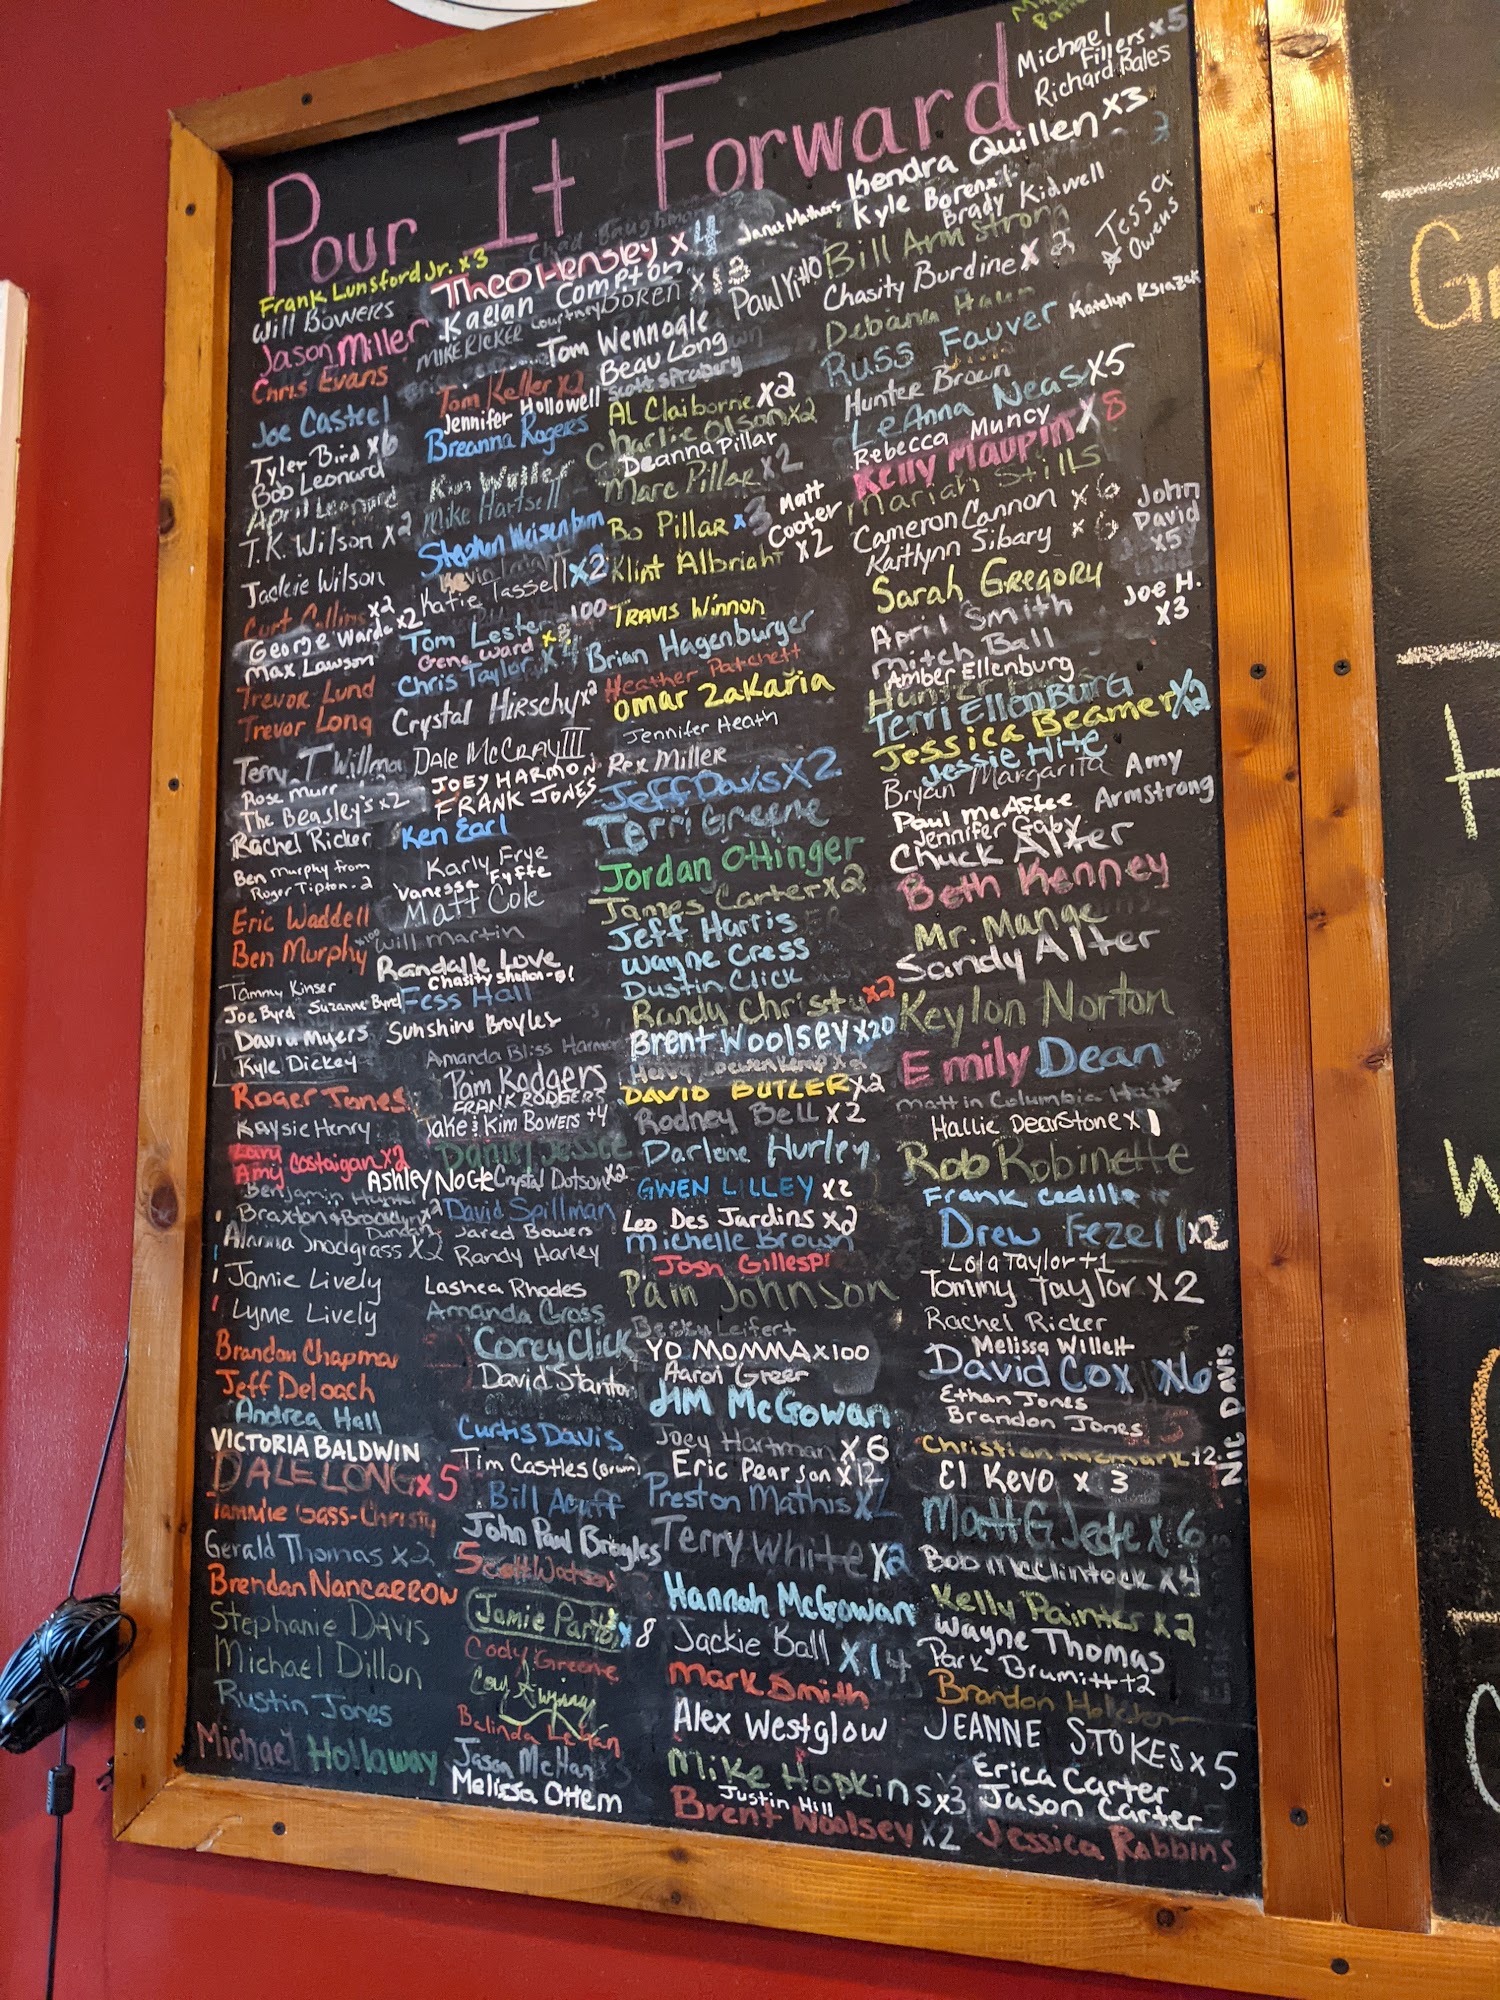 Pour It Forward
Frank Lunsford Jr. x3
Will Bowers
Jason Miller
Chris Evans
Joe Casteel
Tyler Bird x6
Bob Leonard
April Leonard
T.K. Wilson x2
Jackie Wilson
Curt Collins x2
George Ward x2
Max Lawson
Trevor Lund
Trevor Long
Terry T Willma
Rose Murr
The Beasley's x2
Rachel Ricker
Ben Murphy from
Roger Tipton - 2
Eric Waddell
Ben Murphy x100
Tammy Kinser
Joe Byrd Suzanne Byrd
David Myers
Kyle Dickey
Roger Jones
Kaysie Henry
Amy Costaigan x2
Benjamin Hunter
Braxton & Brooklyn x2
Alanna Snodgrass x2
Jamie Lively
Lynne Lively
Brandon Chapman
Jeff Deloach
Andrea Hall
VICTORIA BALDWIN
DALE LONG x5
Tammie Gass-Christy
Gerald Thomas x2
Brendan Nancarrow
Stephanie Davis
Michael Dillon
Rustin Jones
Michael Hollaway
Theo Hensley x4
Kaelan Compton
Courtney Boren x12
MIKE RICKER
Tom Wennogle
Beau Long
Tom Keller x2
Scott Sprabery
Jennifer Hollowell
Breanna Rogers
Mike Hartsell
Katie Tassell x2
Tom Lester 100
Gene Ward
Chris Taylor x4
Crystal Hirschy x2
Dale McCray III
JOEY HARMON
FRANK JONES
Ken Earl
Karly Frye
Vanessa Fyffe
Matt Cole
Will Martin
Randalle Love
Fess Hall
Sunshine Broyles
Amanda Bliss Harmon
Pam Rodgers
FRANK RODGERS
Jake & Kim Bowers +4
Danny Jessee
Ashley Nocte Crystal Dotson x2
David Spillman
Jared Bowers
Randy Harley
Lashea Rhodes
Amanda Gross
Corey Click
David Stanton
Curtis Davis
Tim Castles (Brwn)
Bill Acuff
John Paul Broyles
Scott Watson
Jamie Parton x8
Cody Greene
Belinda Leban
Jason McHan
Melissa Ottem
Janet Mathers
Paul Vitto
Al Claiborne x2
Charlie Olson x2
Deanna Pillar
Marc Pillar x2
Bo Pillar x3
Matt Cooter x2
Klint Albright
Travis Winnon
Brian Hagenburger
Heather Patchett
Omar Zakaria
Jennifer Heath
Rex Miller
Jeff Davis x2
Terri Greene
Jordan Ottinger
James Carter x2
Jeff Harris
Wayne Cress
Dustin Click
Randy Christy x2
Brent Woolsey x20
DAVID BUTLER x2
Rodney Bell x2
Darlene Hurley
GWEN LILLEY x2
Leo Des Jardins x2
Michelle Brown
Josh Gillespi
Pam Johnson
Becky Leifert
YO MOMMA x100
Aaron Greer
JIM McGowan
Joey Hartman x6
Eric Pearson x12
Preston Mathis x2
Terry White x2
Hannah McGowan
Jackie Ball x14
Mark Smith
Alex Westglow
Mike Hopkins x3
Justin Hill
Brent Woolsey x2
Michael Fillers x5
Richard Bales
Kendra Quillen x3
Kyle Boren x1
Brady Kidwell
Bill Armstrong
Chasity Burdine x2
Jessa Owens
Debana Haun
Russ Fauver
Katelyn Ksiazek
Hunter Brown
LeAnna Neas x5
Rebecca Muncy
Kelly Maupin x8
Mariah Stills
Cameron Cannon x6
Kaitlynn Sibary x6
John David x5
Sarah Gregory
Joe H. x3
April Smith
Mitch Ball
Amber Ellenburg
Terri Ellenburg
Jessica Beamer x2
Jessie Hite
Bryan Margarita
Amy Armstrong
Paul McAffee
Jennifer Gaby
Chuck Alter
Beth Kenney
Mr. Mange
Sandy Alter
Keylon Norton
Emily Dean
Matt in Columbia
Hallie Dearstone x1
Rob Robinette
Frank Cedillo
Drew Fezell x2
Lola Taylor +1
Tommy Taylor x2
Rachel Ricker
Melissa Willett
David Cox x6
Ethan Jones
Brandon Jones
Nic Davis
Christian McMark +2
El Kevo x 3
Matt G Jede x 6
Bob McClintock x4
Kelly Painter x2
Wayne Thomas
Park Brumitt +2
Brandon
JEANNE STOKES x5
Erica Carter
Jason Carter
Jessica Robbins